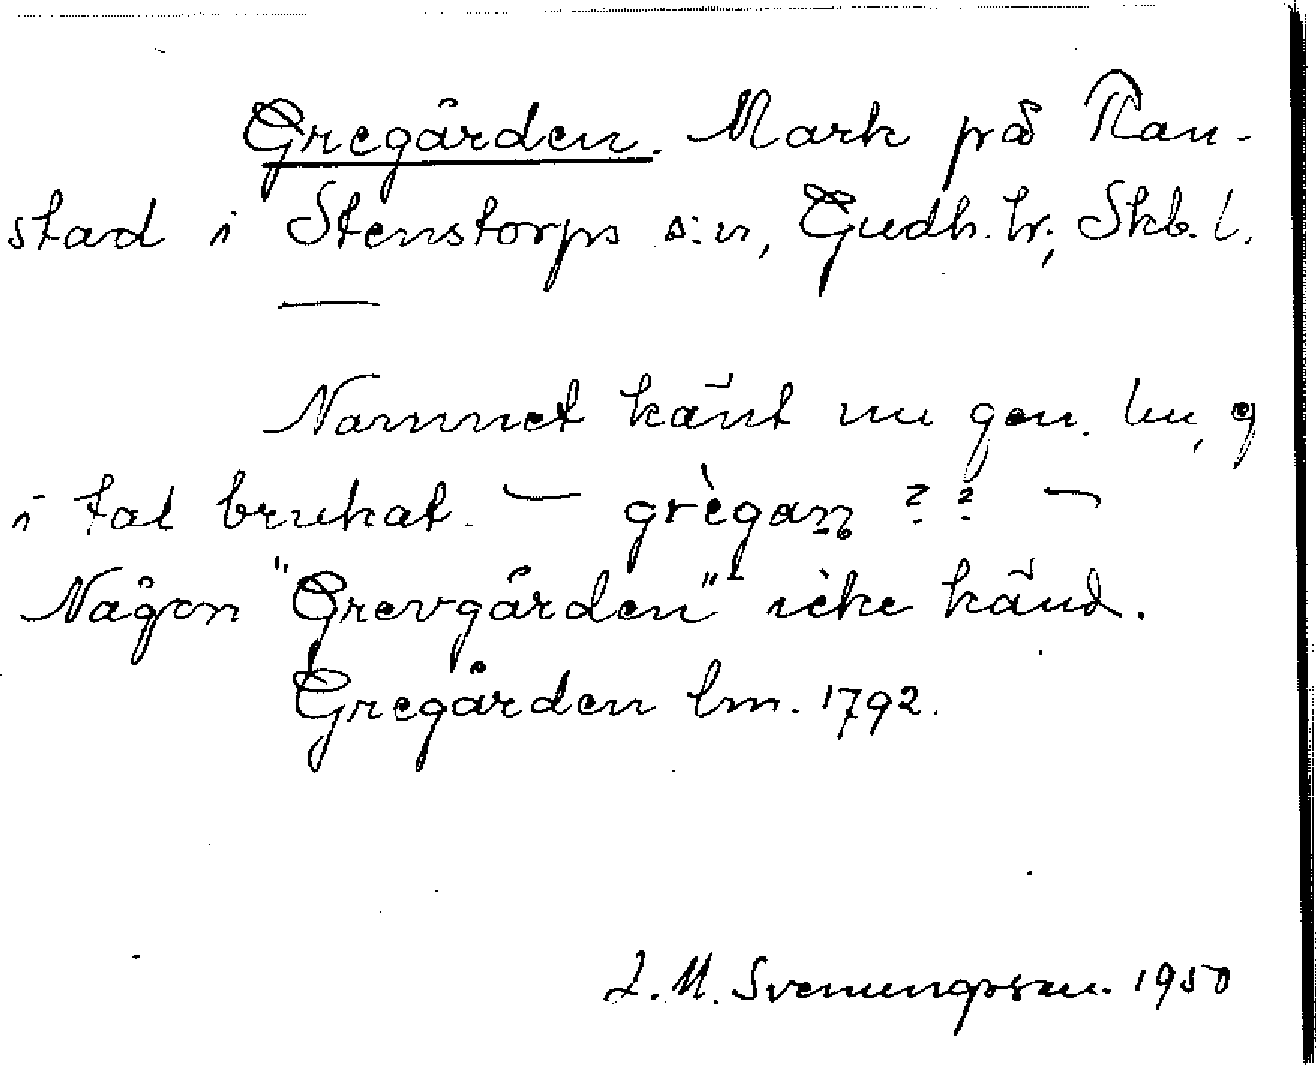 Gregården. Mark på Ran-
stad i Stenstorps s:n, Gudh. hr, Skb. l.
Namnet känt nu gen. lm, ej
i tal brukat. — grègan̥ ? ? —
Någon "Grevgården" icke känd.
Gregården lm. 1792.
J. M. Svenungsson. 1950